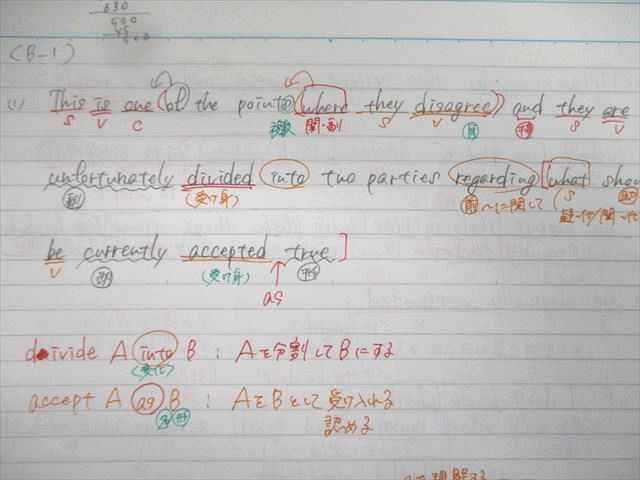 630
500
(B-1)
(1) This is one (of the points (where they disagree) and they are
S V C 複数 関・副 S V 自 等 S V
unfortunately divided into two parties regarding [what shou
副 (受け身) 前 ~に関して S 疑・代/関・代 助
be currently accepted true]
V 副 (受け身) 形
as
divide A into B : Aを分割してBにする
(変化)
accept A as B : AをBとして受け入れる
名 形 認める
理解する